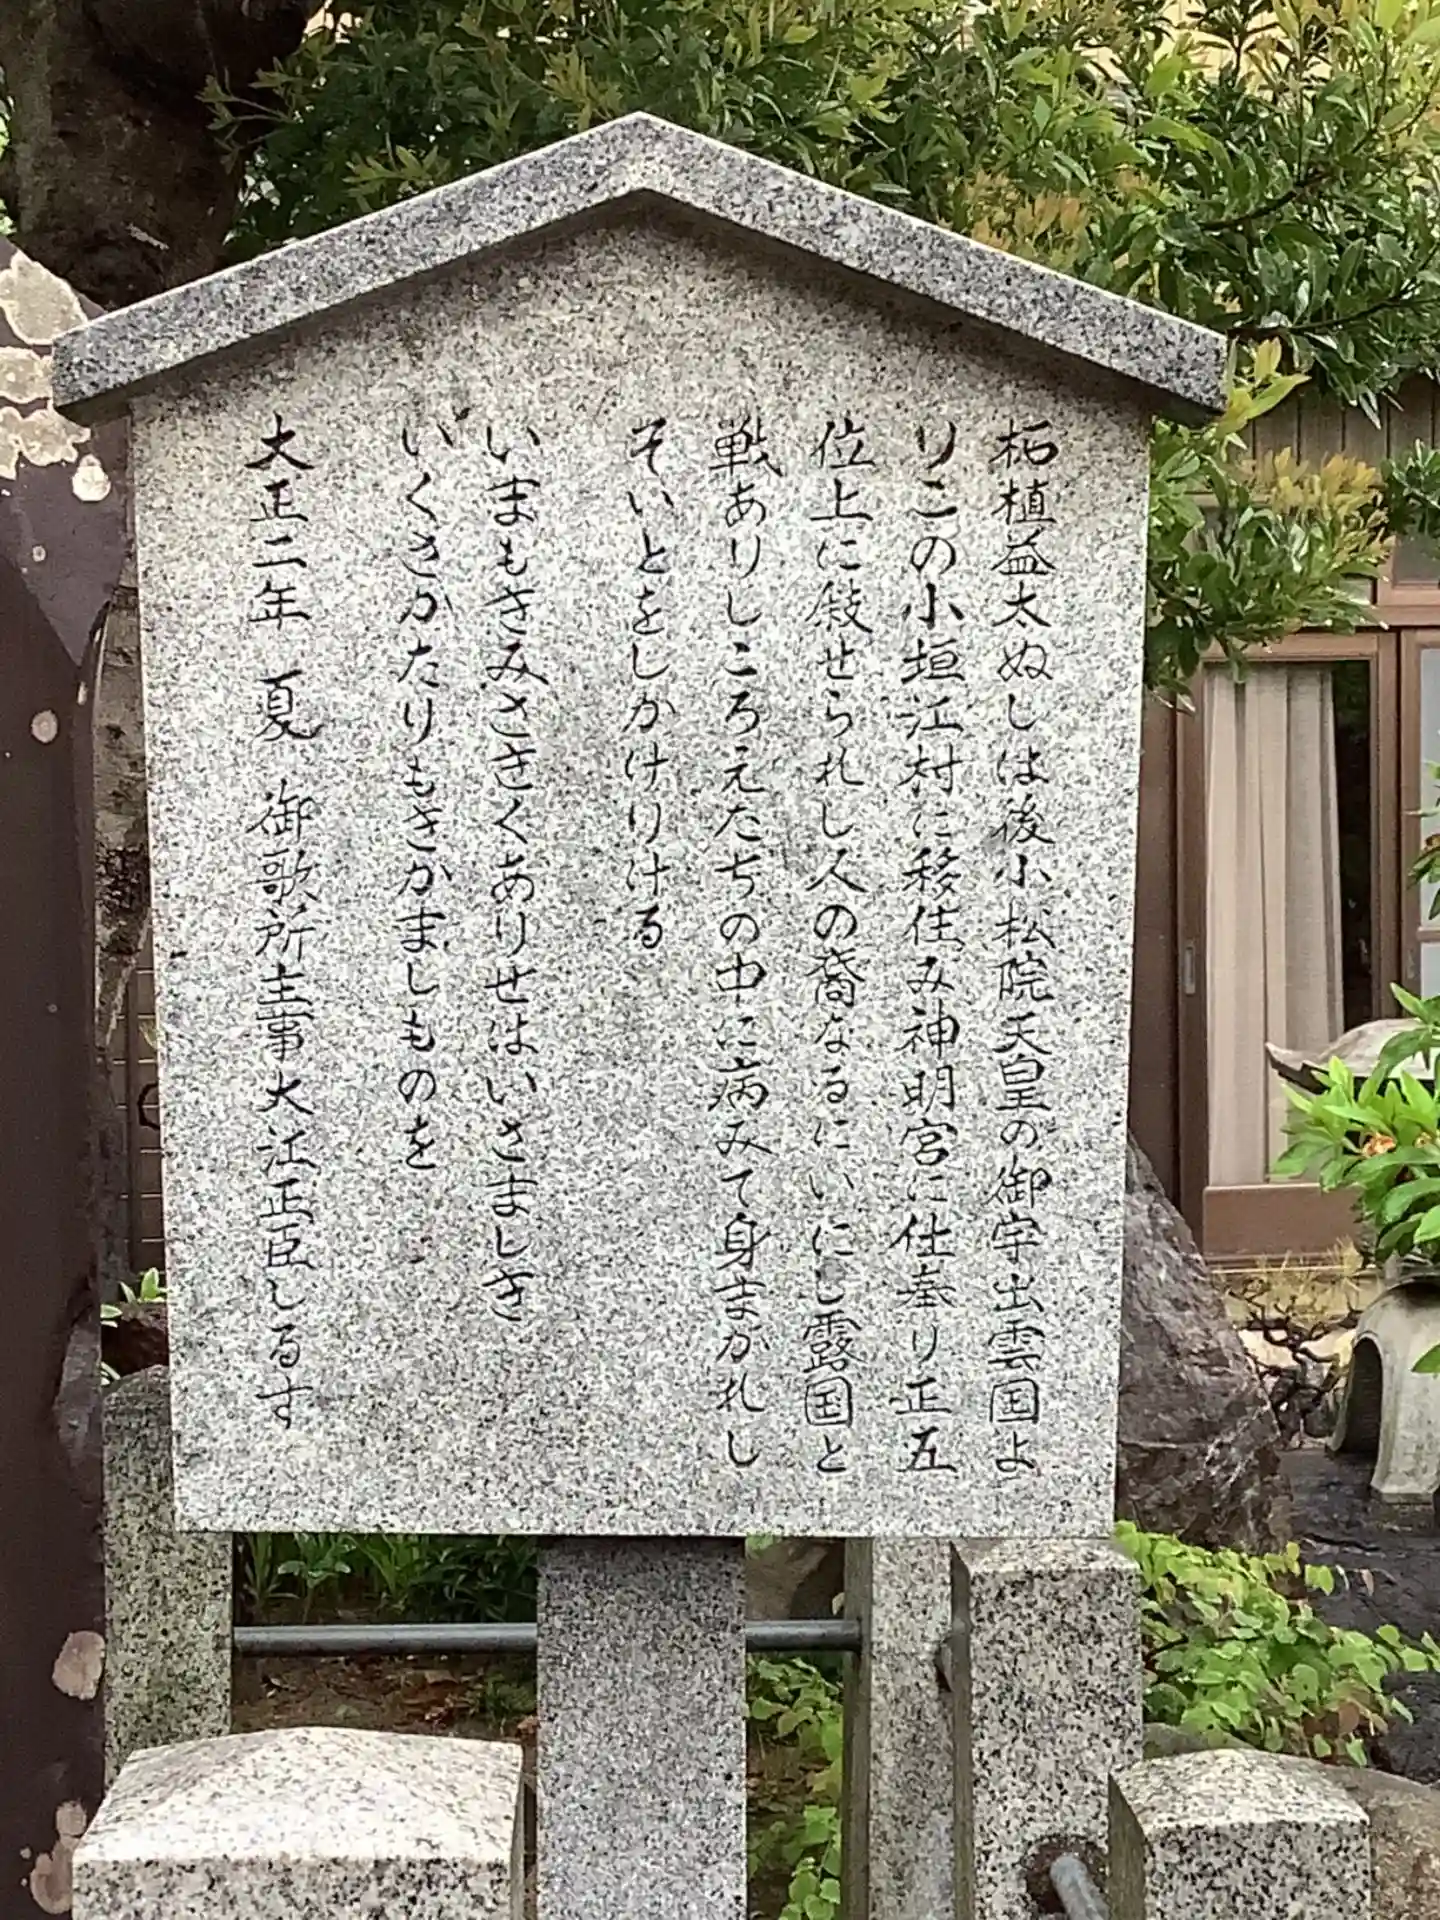 柘植益太ぬしは後小松院天皇の御宇出雲国よ
りこの小垣江村に移住み神明宮に仕奉り正五
位上に叙せられし人の裔なるにいにし露国と
戦ありしころえたちの中に病みて身まかれし
そいとをしかけりける
いまもきみさきくありせはいさましき
いくさかたりもきかましものを
大正二年 夏 御歌所主事大江正臣しるす